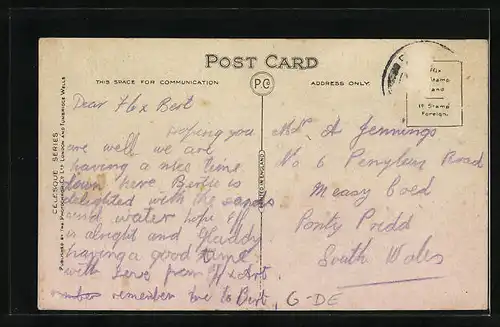 POST CARD
THIS SPACE FOR COMMUNICATION
P.C.
ADDRESS ONLY.
Stamp
1d Stamp
Foreign.
CELESQUE SERIES
PUBLISHED BY THE PHOTOCHROM CO LTD LONDON AND TUNBRIDGE WELLS
PRINTED IN ENGLAND
Dear Flo x Bert
Hoping you
are well we are
having a nice time
down here Bertie is
delighted with the sands
and water hope Elf
is alright and Gladdy
having a good time
with love from
remember me to Bert
Mr. A Jennings
No 6 Road
Coed
Ponty Pridd
South Wales
G-DE